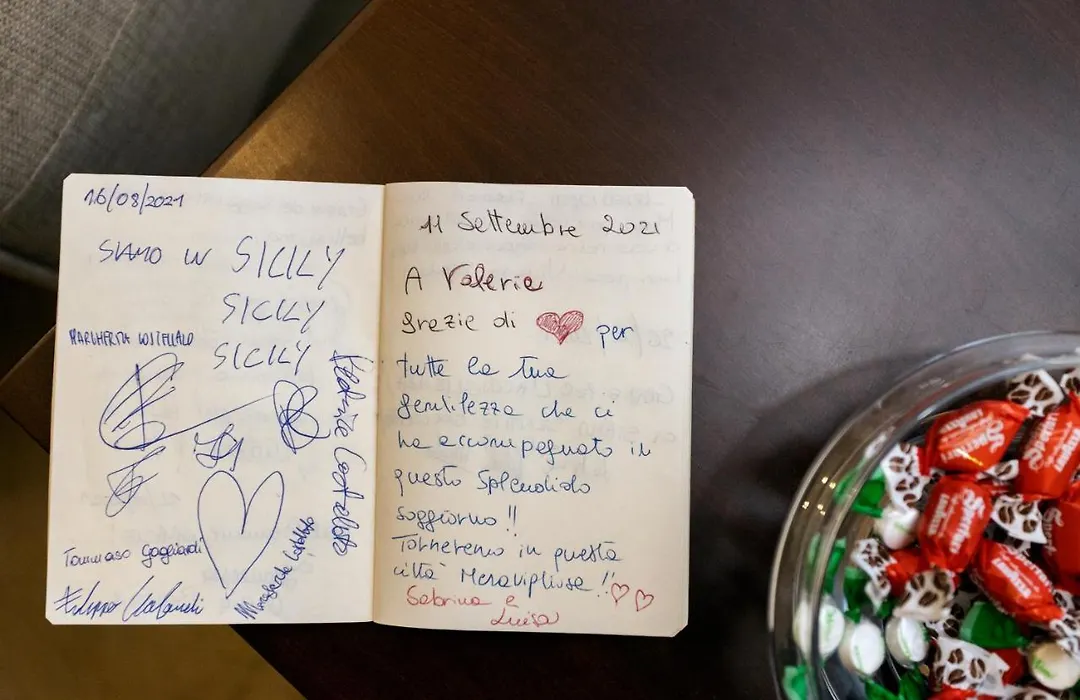 16/08/2021
SIAMO IN SICILY
SICILY
SICILY
MARGHERITA COSTELLATO
Tommaso Gagliardi
Filippo
11 Settembre 2021
A Valeria
grazie di per
tutta la tua
gentilezza che ci
ha accompagnato in
questo splendido
soggiorno!!
Torneremo in questa
città Meravigliosa!!
Sabrina e
Luisa